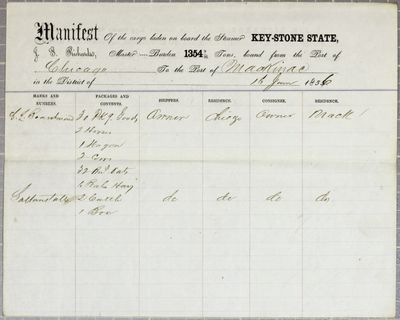 Manifest Of the cargo laden on board the Steamer KEY-STONE STATE,
J. B. Master Burden 1354 Tons, bound from the Port of
Chicago To the Port of Mackinac
in the District of 18 June 1856
MARKS AND NUMBERS. PACKAGES AND CONTENTS. SHIPPERS. RESIDENCE. CONSIGNEE. RESIDENCE.
Goods Owner Chicago Owner Mack
2 Horses
1 Wagon
2
Oats
Hay
Saltonstall 2 do do do do
1 Box